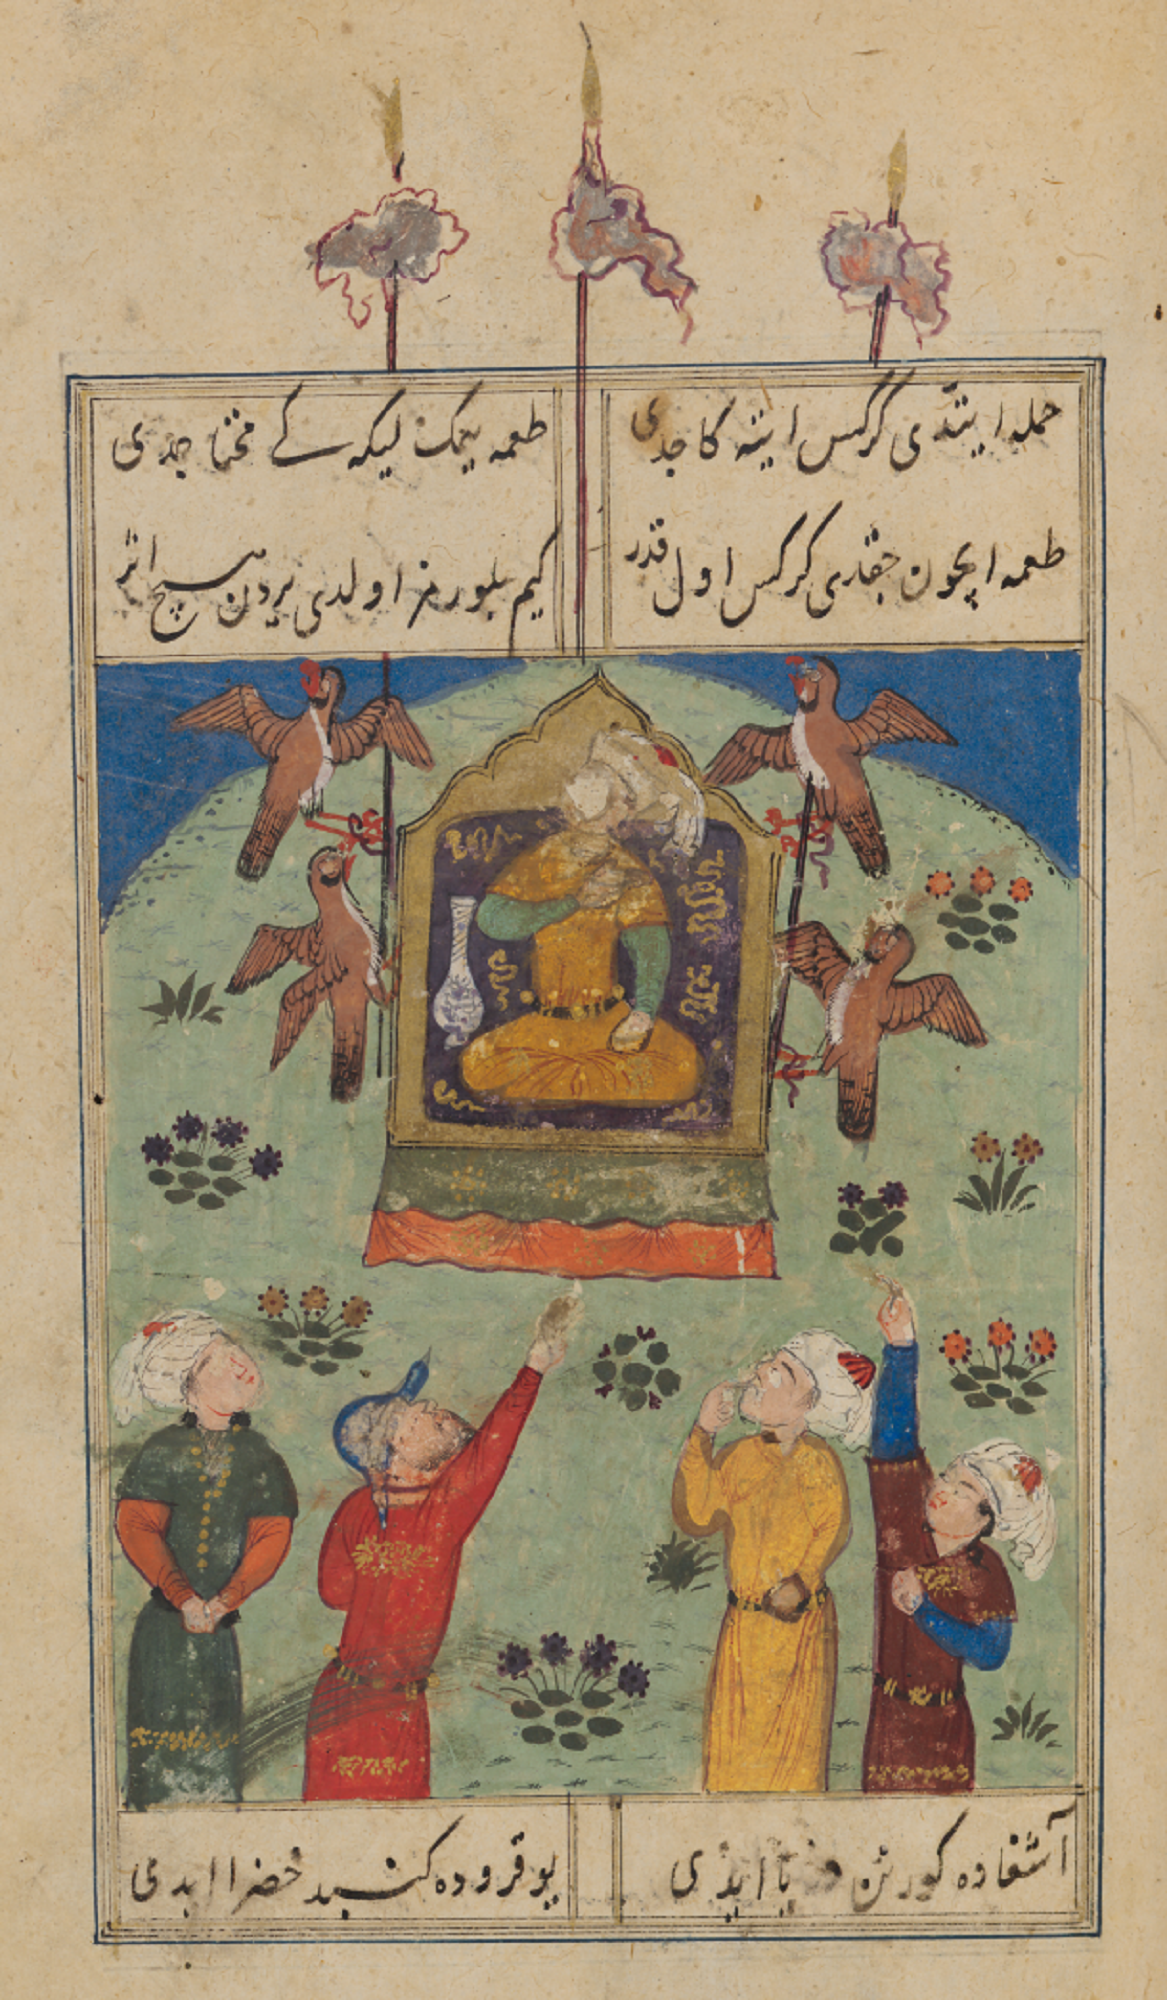 حمله ایتدی کرکس ایته کاجدی
طعمه یمک لیکه کے محتاجدی
طعمه ایچون چقدی کرکس اول قدر
کیم بلورمز اولدی یردن هیچ اثر
آشغاده کورنن دریا ایدی
یوقروده کنبد خضرا ایدی